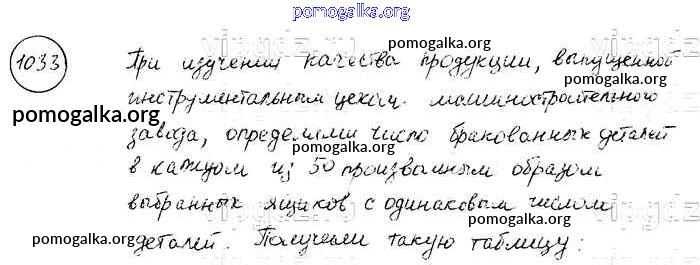 pomogalka.org
1033 При изучении качества продукции, выпущенной
pomogalka.org pomogalka.org
инструментальным цехом машиностроительного
pomogalka.org
завода, определяли число бракованных деталей
в каждом из 50 произвольным образом
pomogalka.org pomogalka.org
выбранных ящиков с одинаковым числом
pomogalka.org pomogalka.org
деталей. Получили такую таблицу: